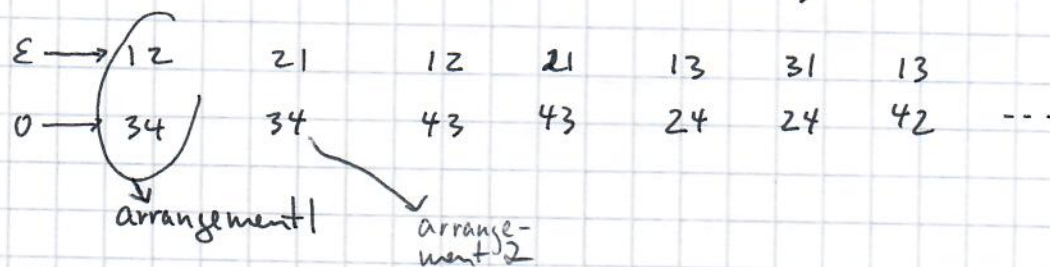 ε → 12 21 12 21 13 31 13
0 → 34 34 43 43 24 24 42 ---
arrangement1
arrange-
ment 2